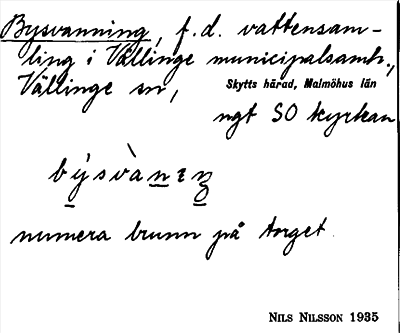 Bysvanning, f.d. vattensam-
ling i Vällinge municipalsamh.,
Vällinge sn, Skytts härad, Malmöhus län
ngt SO kyrkan
numera brunn på torget.
NILS NILSSON 1935